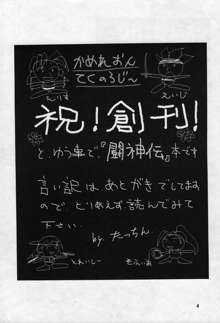 かめれおん
てくのろじ〜
えいす
えいじ
祝!創刊!
と、ゆう事で、『闘神伝』本です
言い訳は、あとがきでしてます
ので、とりあえず読んでみて
下さい…
by たっちん
とれいしー
そふぃあ
4